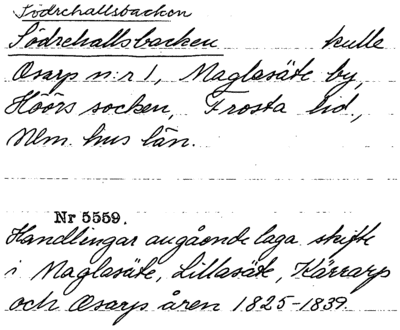 Södrehallsbacken
Södrehallsbacken kulle
Osarp n:r 1, Maglasäte by,
Höörs socken, Frosta hd,
Mlm. hus län.
Nr 5559.
Handlingar angående laga skifte
i Maglasäte, Lillasäte, Kärrarp
och Osarp åren 1825-1839.